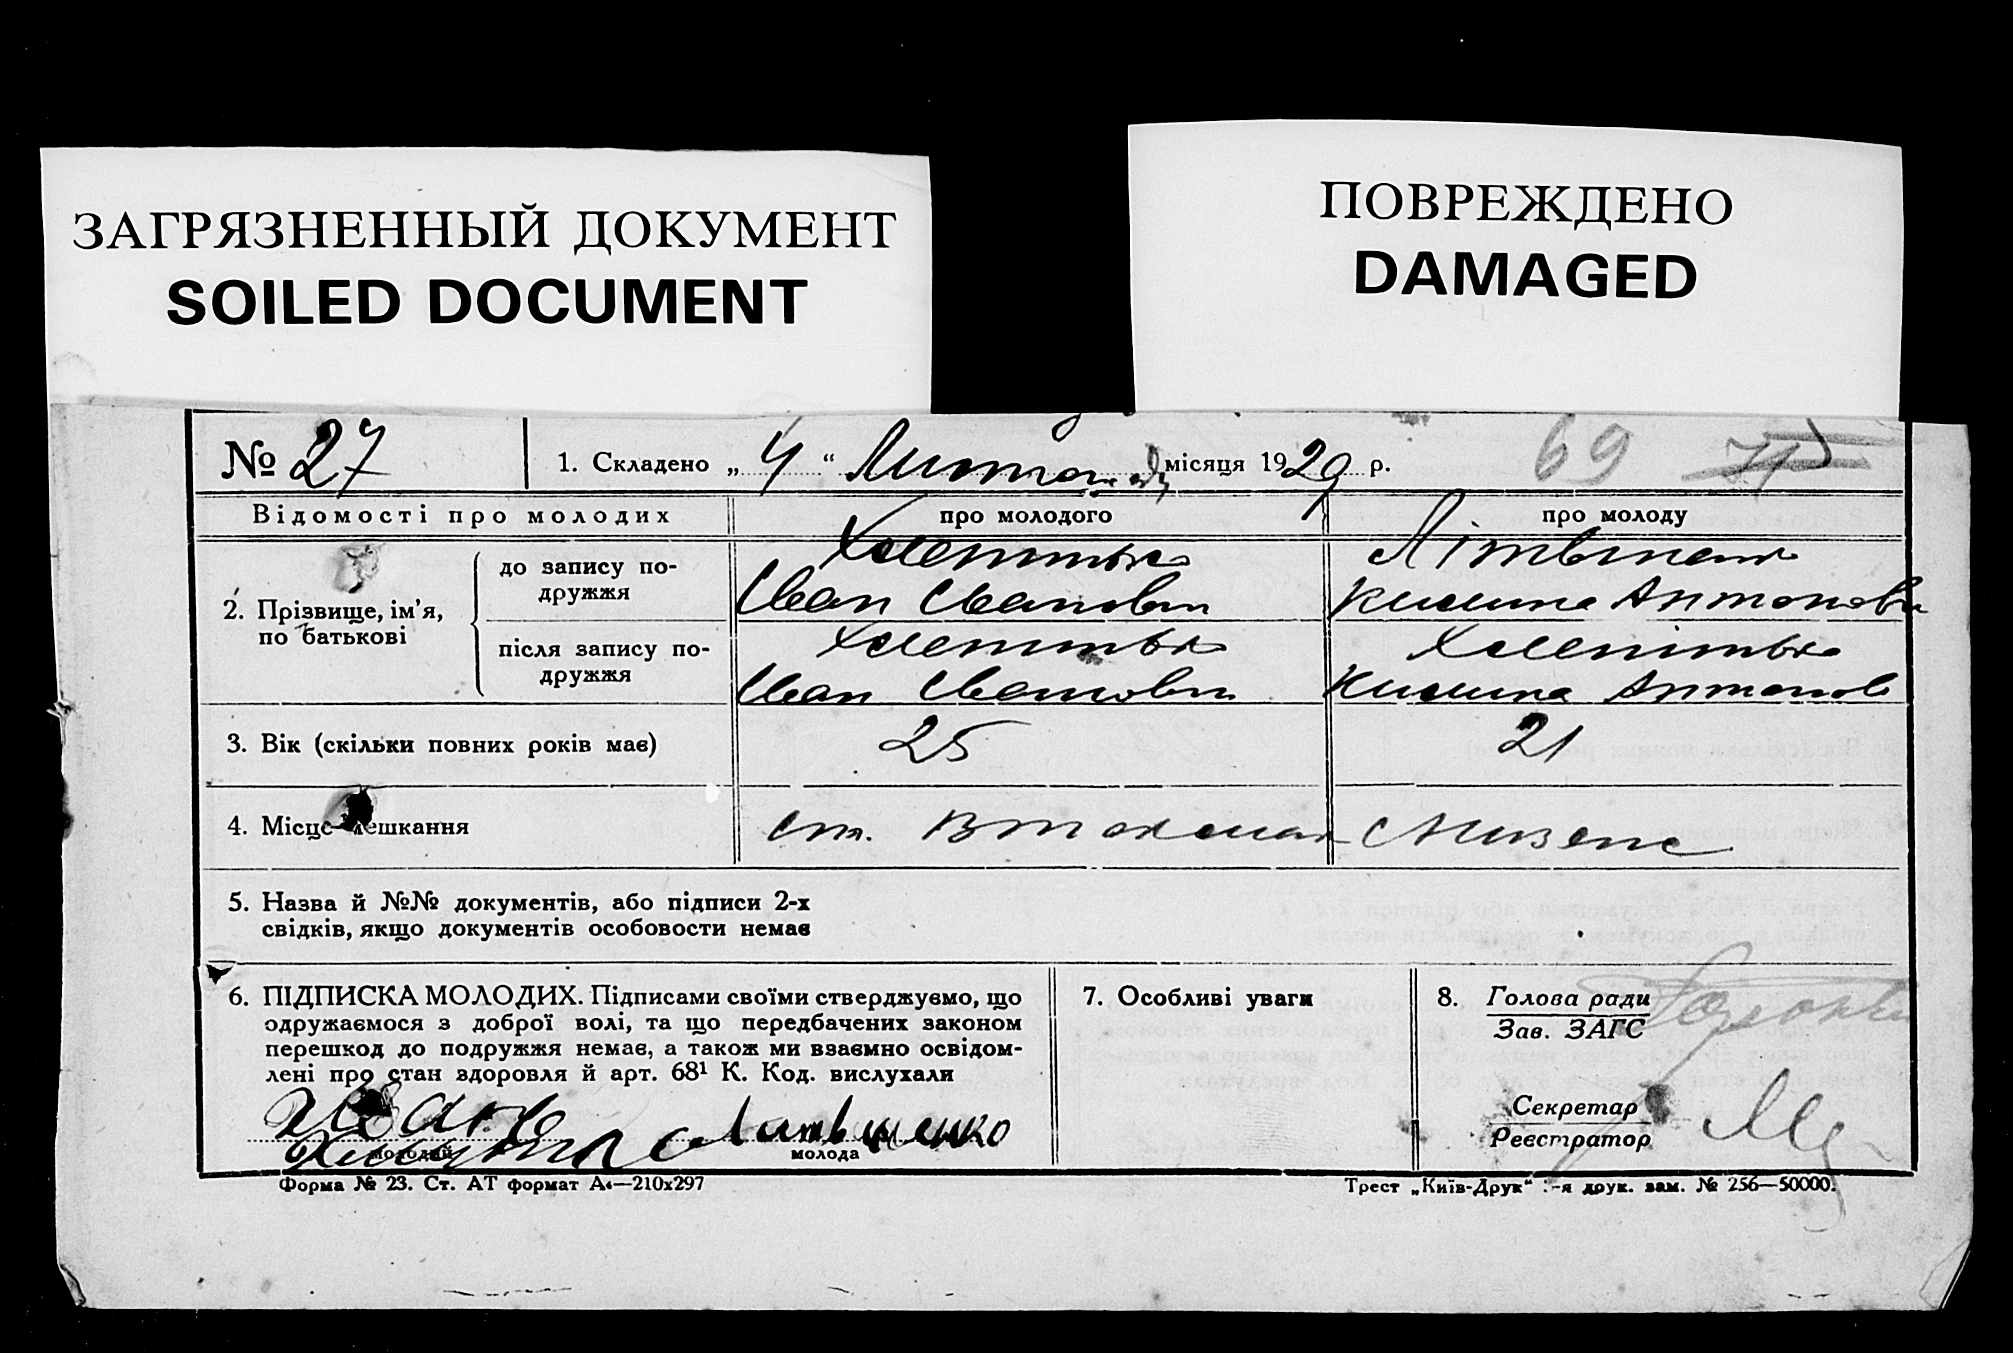 ЗАГРЯЗНЕННЫЙ ДОКУМЕНТ
SOILED DOCUMENT
ПОВРЕЖДЕНО
DAMAGED
№ 27
1. Складено „ 4 “ Лютого місяця 1929 р.
69
Відомості про молодих
про молодого
про молоду
2. Прізвище, ім’я,
по батькові
до запису по-
дружжя
Іван Іванович
Антонов
після запису по-
дружжя
Іван Іванович
Антонов
3. Вік (скільки повних років має)
25
21
4. Місце мешкання
ст.
5. Назва й №№ документів, або підписи 2-х
свідків, якщо документів особовости немає
6. ПІДПИСКА МОЛОДИХ. Підписами своїми стверджуємо, що
одружаємося з доброї волі, та що передбачених законом
перешкод до подружжя немає, а також ми взаємно освідом-
лені про стан здоровля й арт. 68¹ К. Код. вислухали
молодий
молода
7. Особливі уваги
8. Голова ради
Зав. ЗАГС
Секретар
Реєстратор
Форма № 23. Ст. АТ формат А4—210х297
Трест „Київ-Друк“ -я друк. зам. № 256—50000.